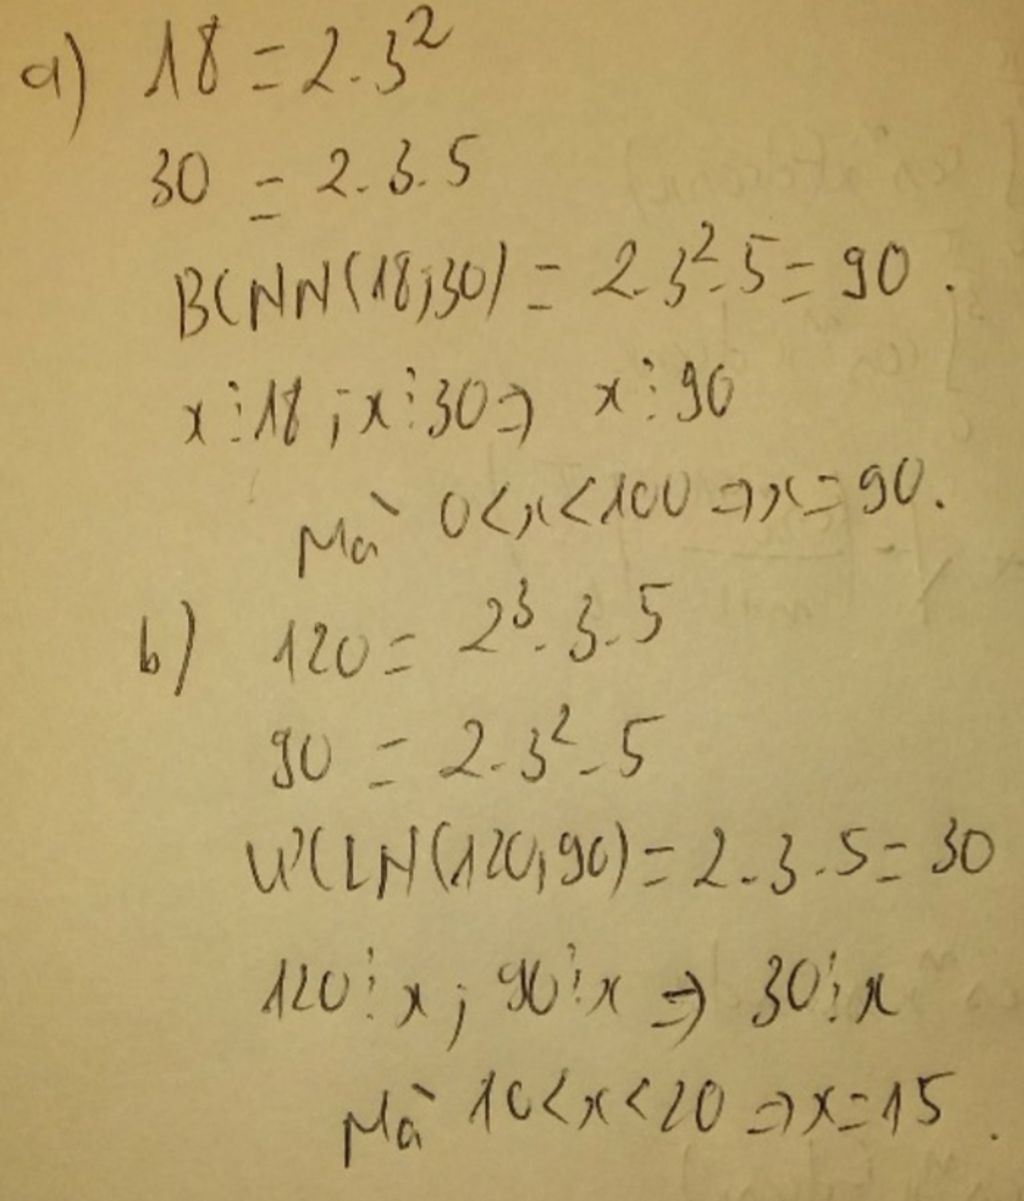 a) 18 = 2.3²
30 = 2.3.5
BCNN(18;30) = 2.3².5 = 90.
x⋮18; x⋮30 ⇒ x⋮90
Mà 0<x<100 ⇒ x = 90.
b) 120 = 2³.3.5
90 = 2.3².5
ƯCLN(120,90) = 2.3.5 = 30
120⋮x; 90⋮x ⇒ 30⋮x
Mà 10<x<20 ⇒ x=15.